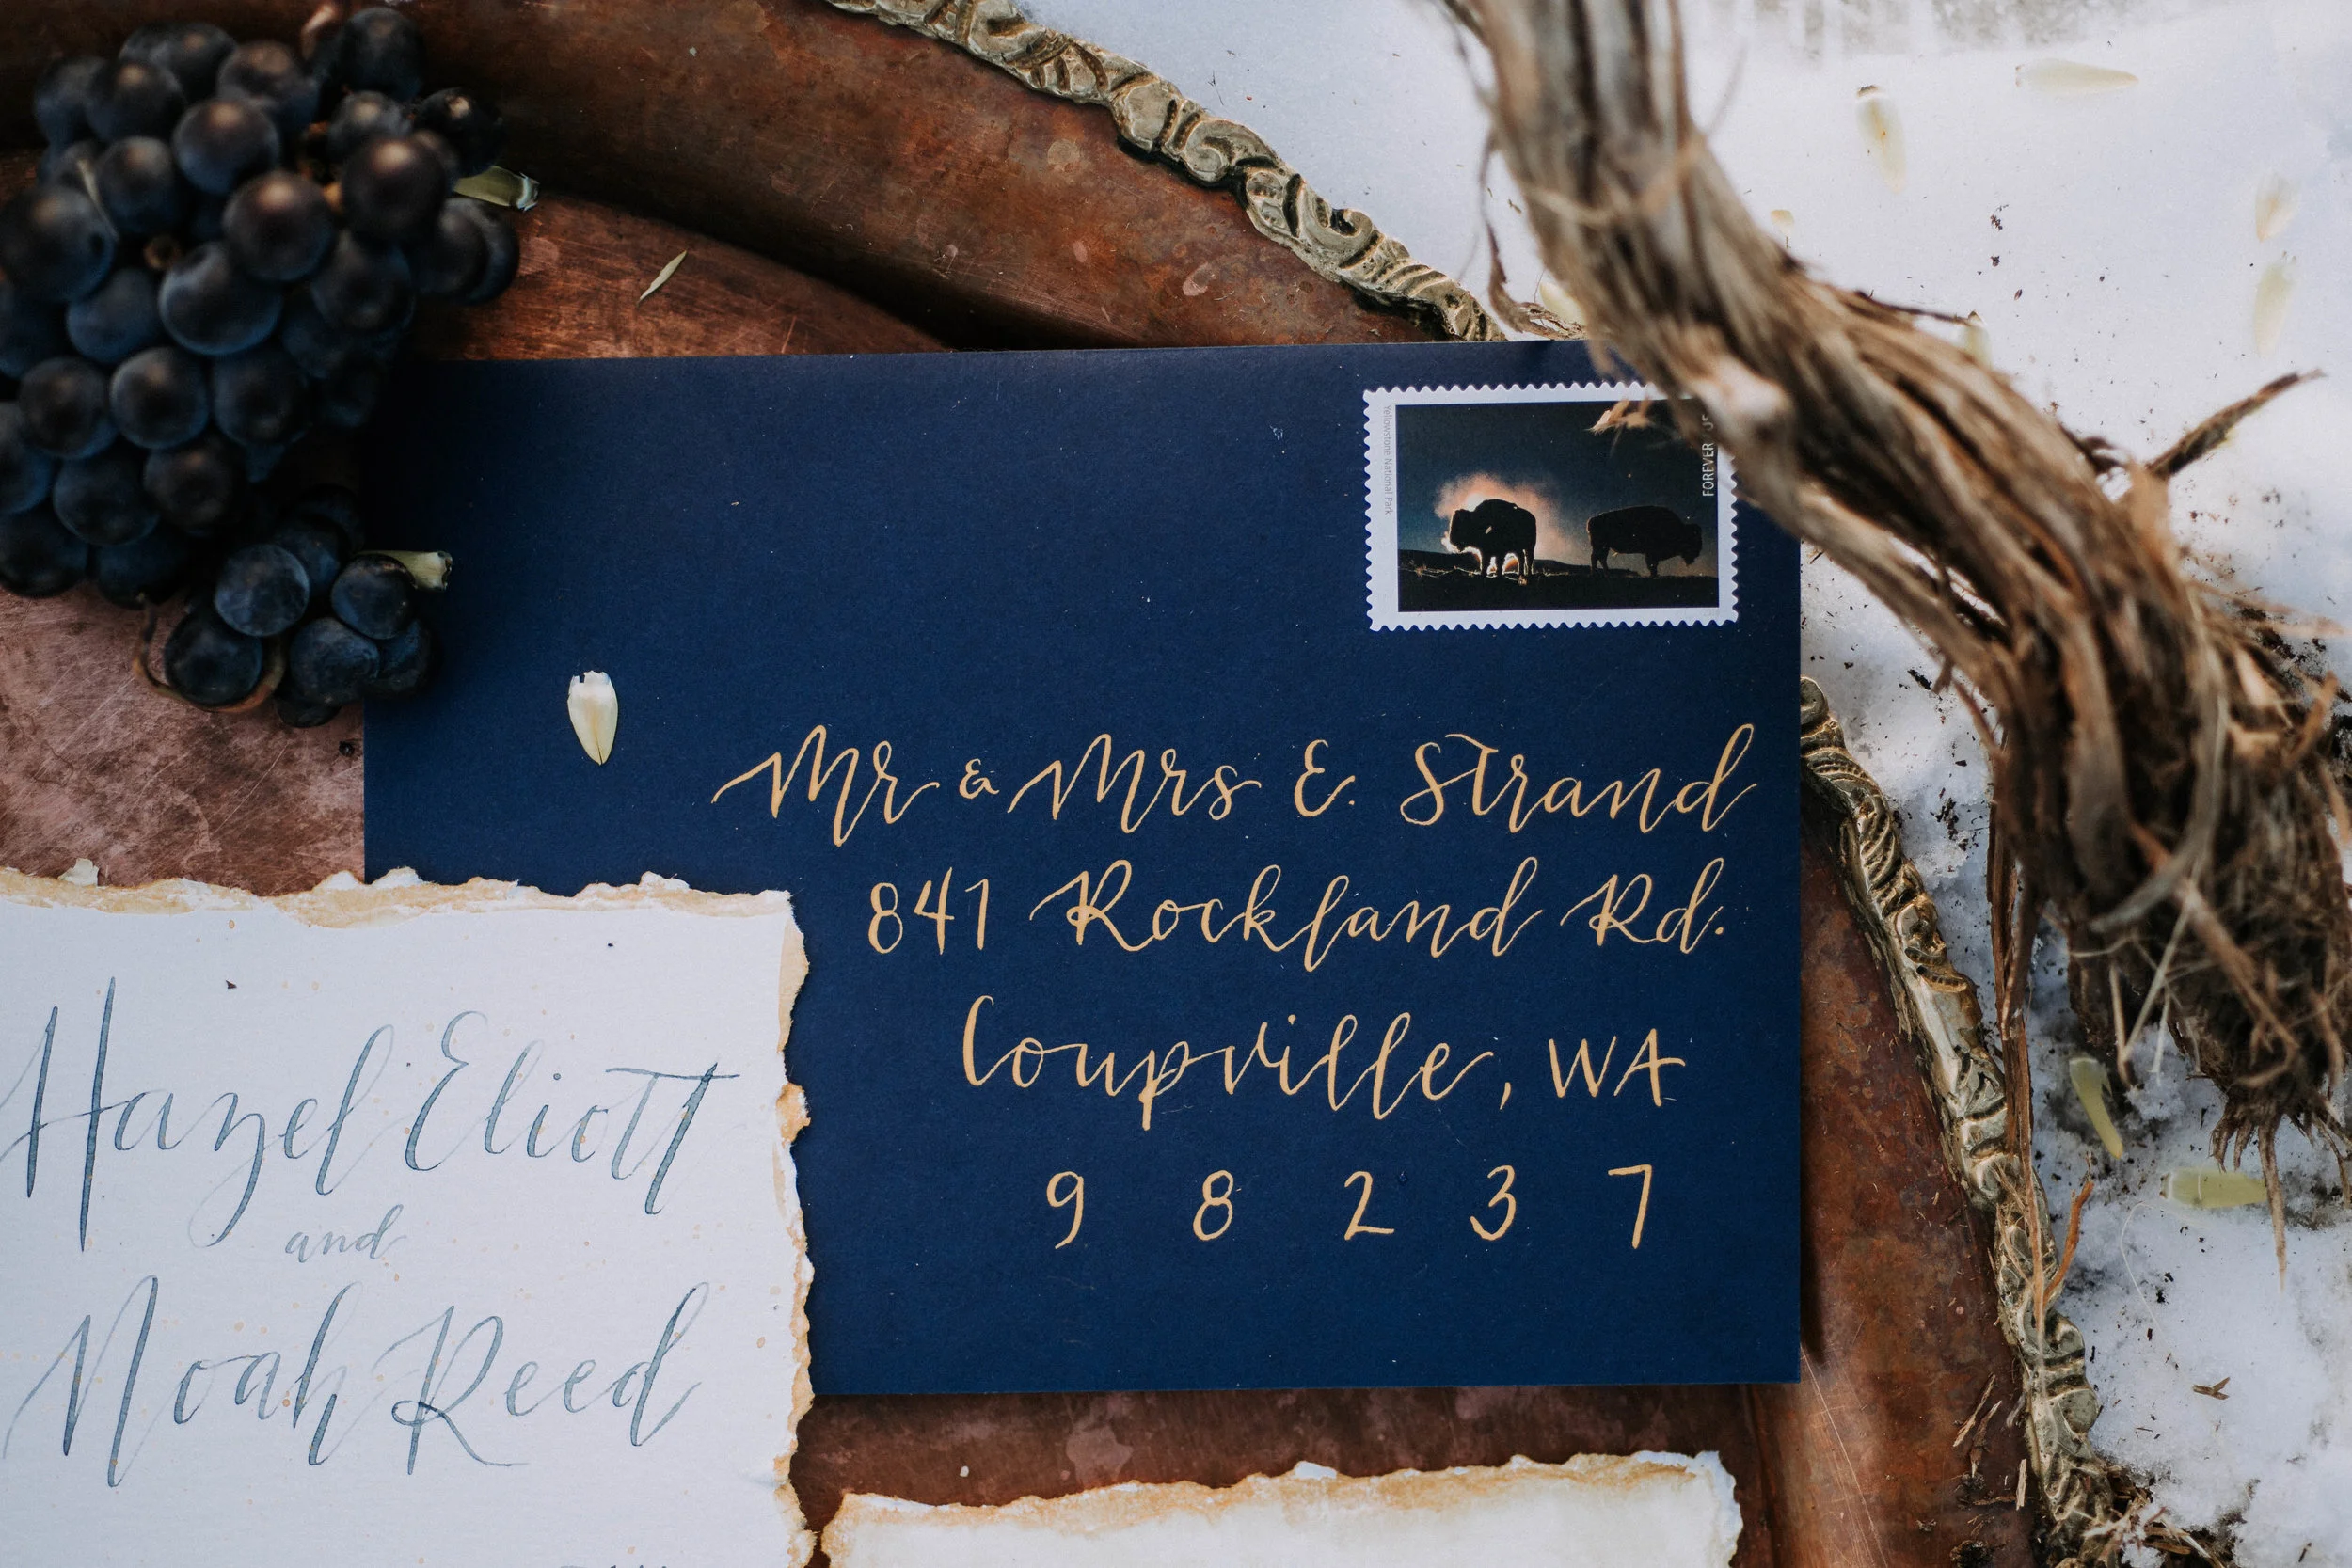 Yellowstone National Park
FOREVER US
Mr & Mrs E. Strand
841 Rockland Rd.
Coupville, WA
9 8 2 3 7
Hazel Eliott
and
Noah Reed